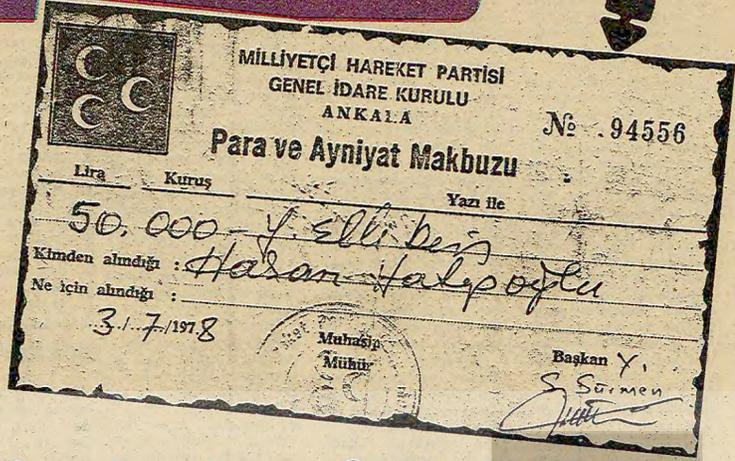 MİLLİYETÇİ HAREKET PARTİSİ
GENEL İDARE KURULU
ANKARA
№ .94556
Para ve Ayniyat Makbuzu
Lira Kuruş Yazı ile
50.000- Y. Elli bin
Kimden alındığı : Hasan
Ne için alındığı :
3/7/1978
Muhasip
Mühür
Başkan Y.
S. Sürmen